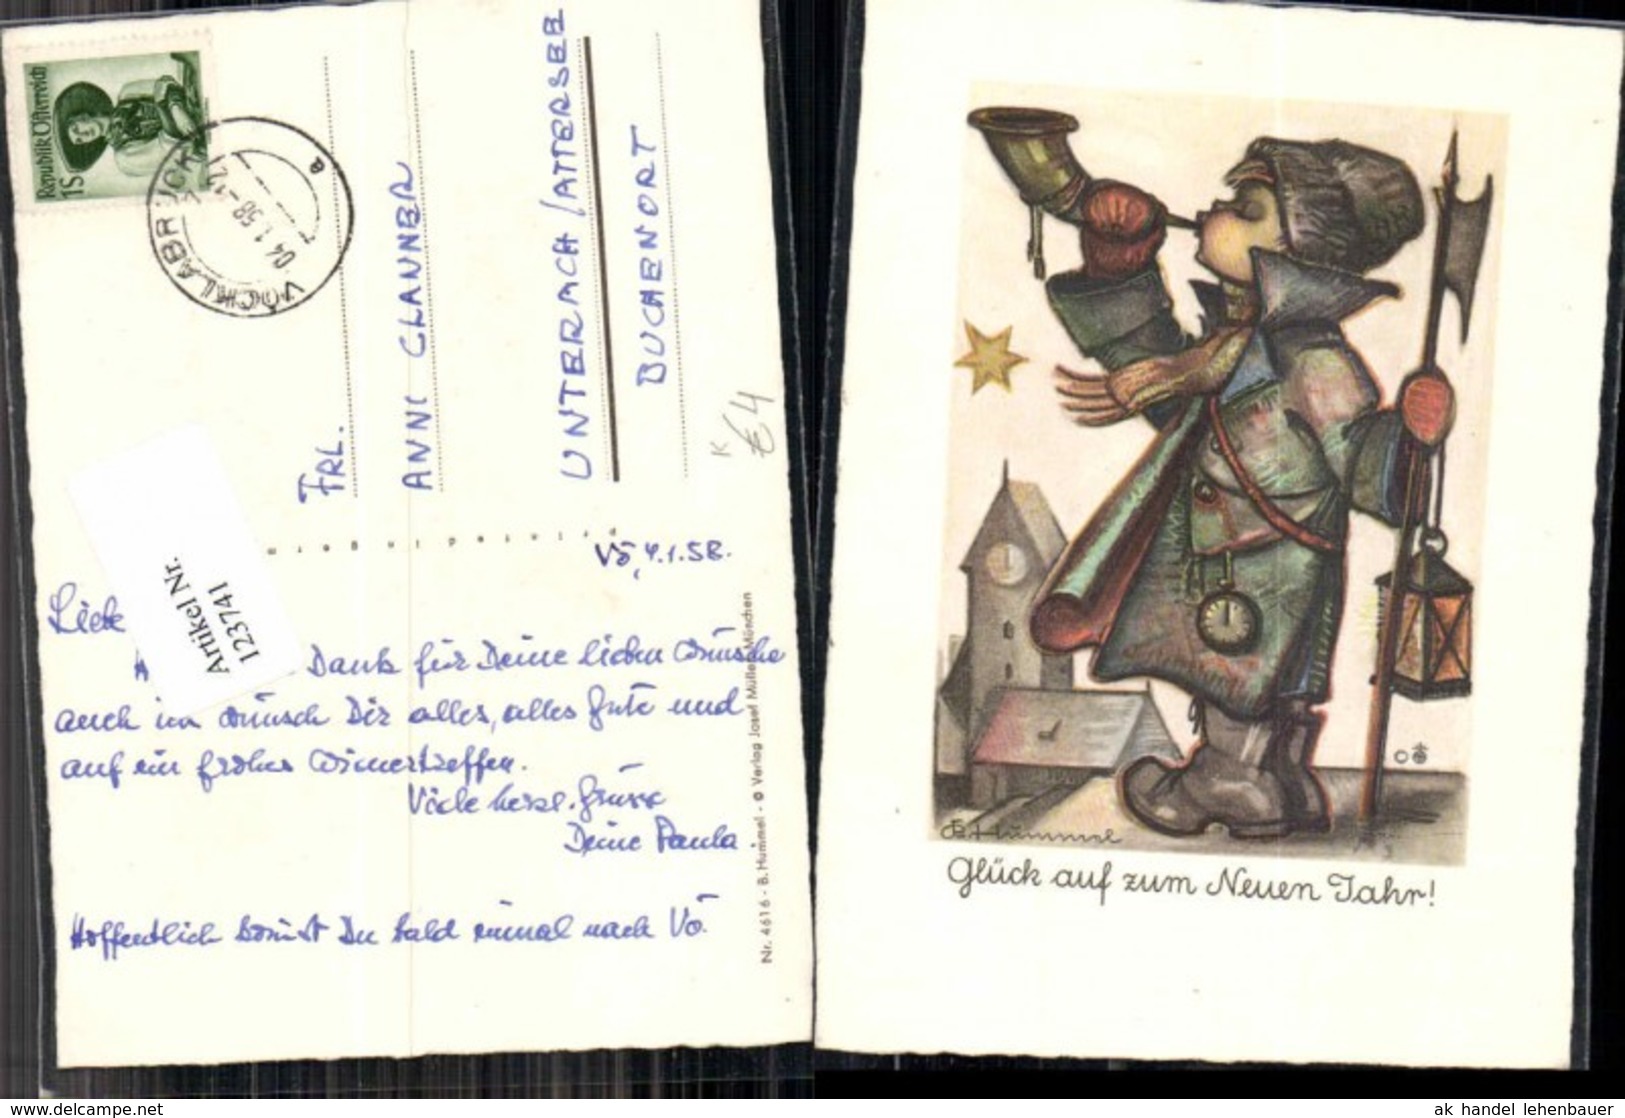 Republik Österreich
1S
VÖCKLABRUCK
04.1.58-12
a
FRL.
ANNI GLANNER
UNTERACH/ATTERSEE
BUCHENORT
K €4
printed in germ
Artikel Nr.
123741
Vö, 4.1.58.
Liebe
Dank für Deine lieben Wünsche
auch ich wünsch Dir alles, alles Gute und
auf ein frohes Wiedertreffen.
Viele herzl. Grüsse
Deine Paula
Hoffentlich kommst Du bald einmal nach Vö.
Nr. 4616 - B. Hummel - © Verlag Josef Müller-München
B. Hummel
Glück auf zum Neuen Jahr!
www.delcampe.net
ak handel lehenbauer